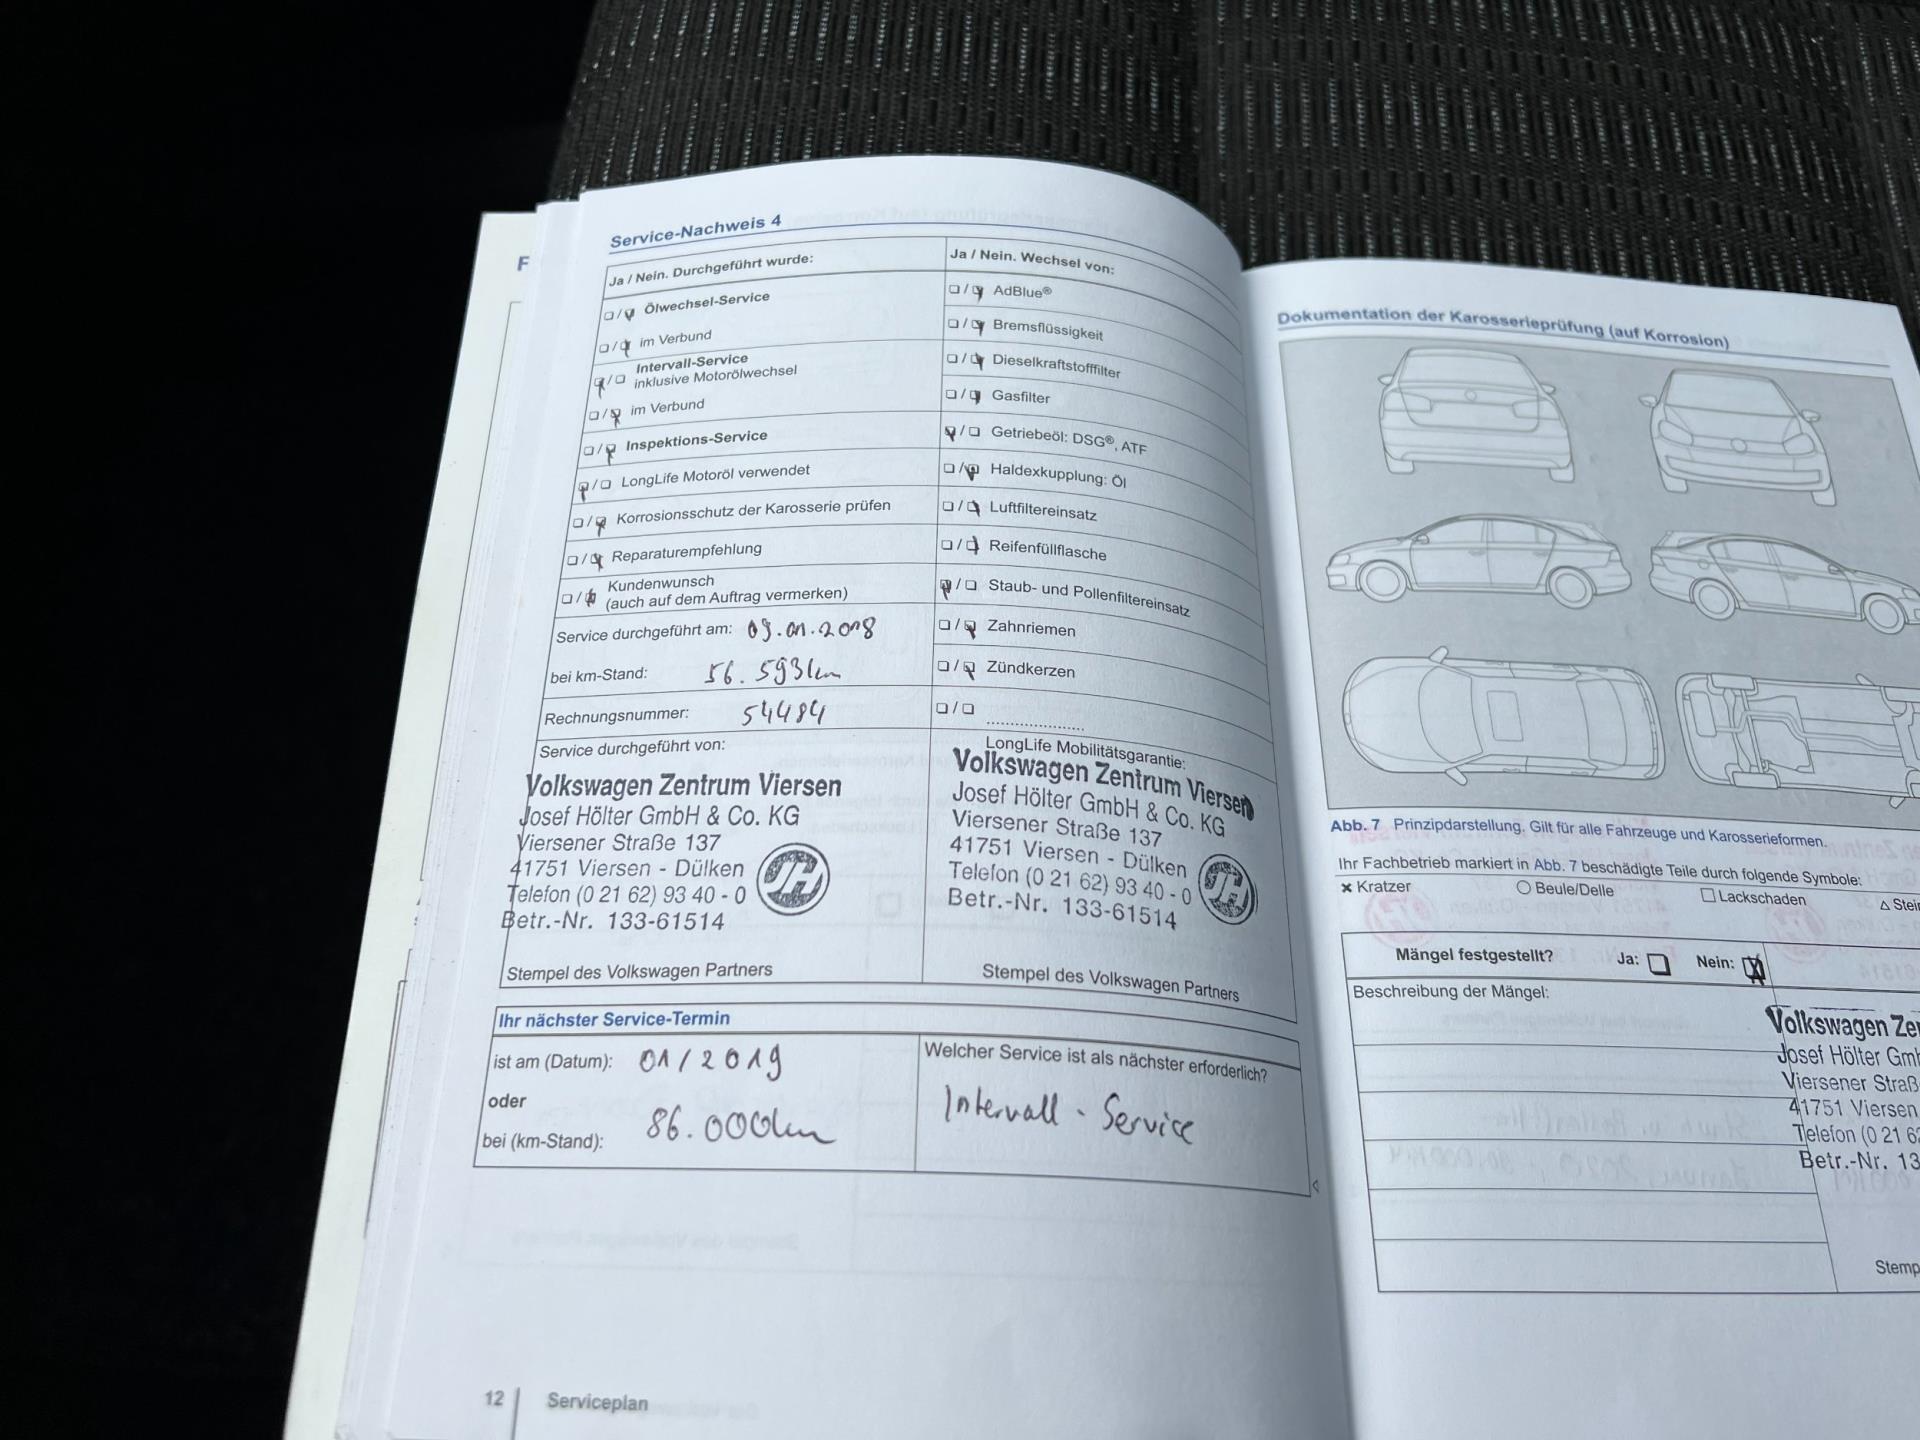 Service-Nachweis 4
Ja / Nein. Durchgeführt wurde:
Ölwechsel-Service
im Verbund
Intervall-Service
inklusive Motorölwechsel
im Verbund
Inspektions-Service
LongLife Motoröl verwendet
Korrosionsschutz der Karosserie prüfen
Reparaturempfehlung
Kundenwunsch
(auch auf dem Auftrag vermerken)
Service durchgeführt am: 09.01.2018
bei km-Stand: 56.593km
Rechnungsnummer: 54484
Ja / Nein. Wechsel von:
AdBlue®
Bremsflüssigkeit
Dieselkraftstofffilter
Gasfilter
Getriebeöl: DSG®, ATF
Haldexkupplung: Öl
Luftfiltereinsatz
Reifenfüllflasche
Staub- und Pollenfiltereinsatz
Zahnriemen
Zündkerzen
Service durchgeführt von:
Volkswagen Zentrum Viersen
Josef Hölter GmbH & Co. KG
Viersener Straße 137
41751 Viersen - Dülken
Telefon (0 21 62) 93 40 - 0
Betr.-Nr. 133-61514
Stempel des Volkswagen Partners
LongLife Mobilitätsgarantie:
Volkswagen Zentrum Viersen
Josef Hölter GmbH & Co. KG
Viersener Straße 137
41751 Viersen - Dülken
Telefon (0 21 62) 93 40 - 0
Betr.-Nr. 133-61514
Stempel des Volkswagen Partners
Ihr nächster Service-Termin
ist am (Datum): 01/2019
oder
bei (km-Stand): 86.000km
Welcher Service ist als nächster erforderlich?
Intervall - Service
12 Serviceplan
F
Dokumentation der Karosserieprüfung (auf Korrosion)
Abb. 7 Prinzipdarstellung. Gilt für alle Fahrzeuge und Karosserieformen.
Ihr Fachbetrieb markiert in Abb. 7 beschädigte Teile durch folgende Symbole:
Kratzer Beule/Delle Lackschaden Stei
Mängel festgestellt? Ja: Nein:
Beschreibung der Mängel:
Volkswagen Ze
Josef Hölter Gm
Viersener Straß
41751 Viersen
Telefon (0 21 6
Betr.-Nr. 13
Stemp